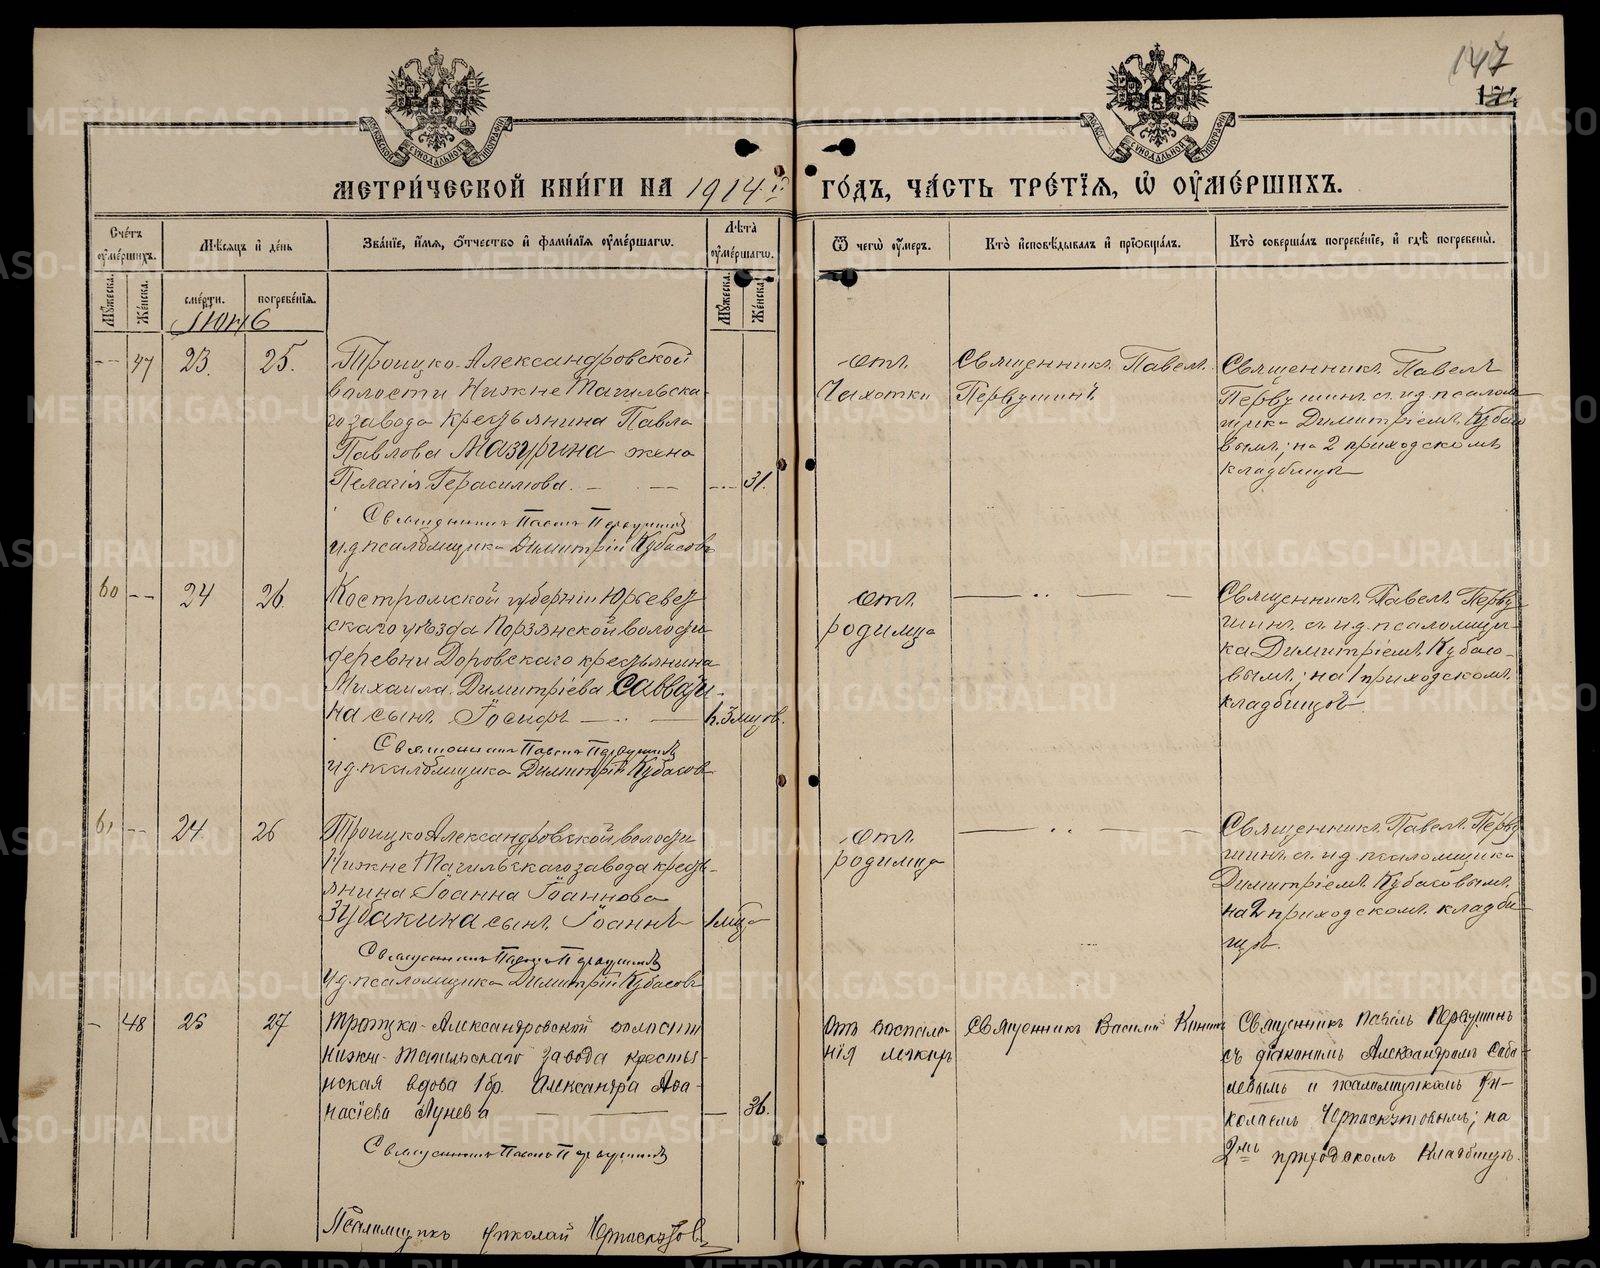 147
МЕТРИ́ЧЕСКОЙ КНИ́ГИ НА 1914 й ГО́ДЪ, ЧА́СТЬ ТРЕ́ТІѦ, Ѡ҆ ОУ҆МЕ́РШИХЪ.
Сче́тъ оу҆ме́ршихъ.
Мѣ́сяцъ и҆ де́нь
Зва́нїе, и҆́мя, ѻ҆́тчество и҆ фами́лїя оу҆ме́ршагѡ.
Лѣта̀ оу҆ме́ршагѡ.
Ѿ чегѡ̀ оу҆́меръ.
Кто̀ и҆сповѣ́дывалъ и҆ прїѻбща́лъ.
Кто̀ соверша́лъ погребе́нїе, и҆ гдѣ̀ погребены̀.
Мꙋ́жеска.
Же́нска.
сме́рти.
погребе́нїя.
Мꙋ́жеска.
Же́нска.
Іюнь
-- 47 23. 25.
Троицко-Александровской
волости Нижне Тагильска-
го завода крестьянина Павла
Павлова Мазурина жена
Пелагія Герасимова. — — --- 31.
Священникъ Павелъ Первушинъ
и.д. псаломщика Димитрій Кубасовъ
отъ
Чахотки
Священникъ Павелъ
Первушинъ
Священникъ Павелъ
Первушинъ съ и.д. псалом-
щика Димитріемъ Кубасо-
вымъ; на 2 приходскомъ
кладбищѣ
60 -- 24 26.
Костромской губерніи Юрьевец-
скаго уѣзда Порзянской волости
деревни Доровскаго крестьянина
Михаила Димитріева Савваги-
на сынъ Іосифъ — .. — 3 мѣсцов.
Священникъ Павелъ Первушинъ
и.д. псаломщика Димитрій Кубасовъ
отъ
родимца
— .. — —
Священникъ Павелъ Перву-
шинъ съ и.д. псаломщи-
ка Димитріемъ Кубасо-
вымъ; на 1 приходскомъ
кладбищѣ.
61 -- 24. 26
Троицко Александровской волости
Нижне Тагильскаго завода кресть-
янина Іоанна Іоаннова
Зубакина сынъ Іоаннъ 1 мца
Священникъ Павелъ Первушинъ
и.д. псаломщика Димитрій Кубасовъ
отъ
родимца
— .. — —
Священникъ Павелъ Перву-
шинъ съ и.д. псаломщика
Димитріемъ Кубасовымъ
на 2 приходскомъ кладби-
щѣ.
- 48 25 27
Троицко-Александровской волости
Нижне-Тагильскаго завода кресты-
нская вдова 1 бр. Александра Аѳа-
насіева Лунева — — 36.
Священникъ Павелъ Первушинъ
Псаломщикъ Николай
Отъ воспале-
нія легкихъ
Священникъ Василій
Священникъ Павелъ Первушинъ
съ діакономъ Александромъ Собо-
левымъ и псаломщикомъ Ни-
колаемъ на
2мъ приходскомъ кладбищѣ.